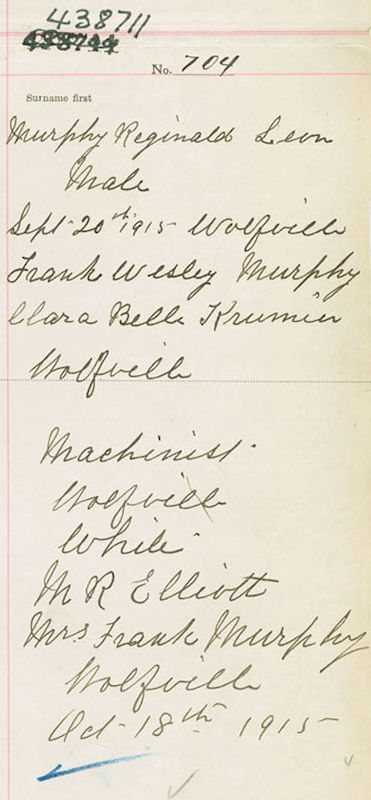 438711
No. 704
Surname first
Murphy Reginald Leon
Male
Sept 20th 1915 Wolfville
Frank Wesley Murphy
Clara Belle
Wolfville
Machinist
Wolfville
White
M R Elliott
Mrs Frank Murphy
Wolfville
Oct 18th 1915